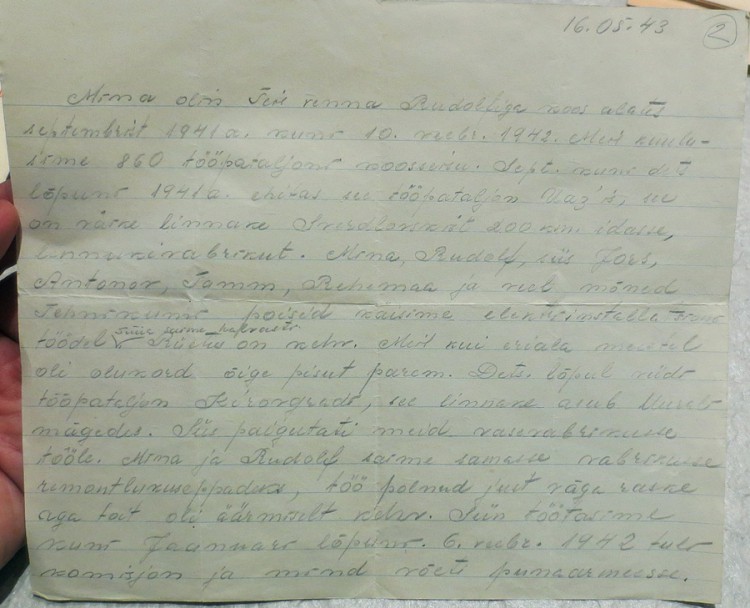 16.05.43 2
Mina olin Teie venna Rudolfiga koos alates
septembrist 1941 a. kuni 10. veebr. 1942. Meil kuulu-
sime 860 tööpataljoni koosseisu. Sept. kuni det
lõpuni 1941 a. ehitas see tööpataljon see
on väike linnake Sverdlovskist 200 km. idasse,
Mina, Rudolf, siis Jors,
Antonov, Tamm, Rehemaa ja veel mõned
Tehnikumi poisid käisime elektriinstallatsiooni
töödel
on kehv. Meil kui eriala meestel
oli olukord õige pisut parem. Dets. lõpul viidi
tööpataljon Kirovgradi, see linnake asub Uurali
mägedes. Siis paigutati meid vasevabrikusse
tööle. Mina ja Rudolf saime samasse vabrikusse
remontlukuseppadeks, töö polnud just väga raske
aga toit oli äärmiselt kehv. Siin töötasime
kuni Jaanuari lõpuni. 6. veebr. 1942 tuli
komisjon ja mind võeti punaarmeesse.